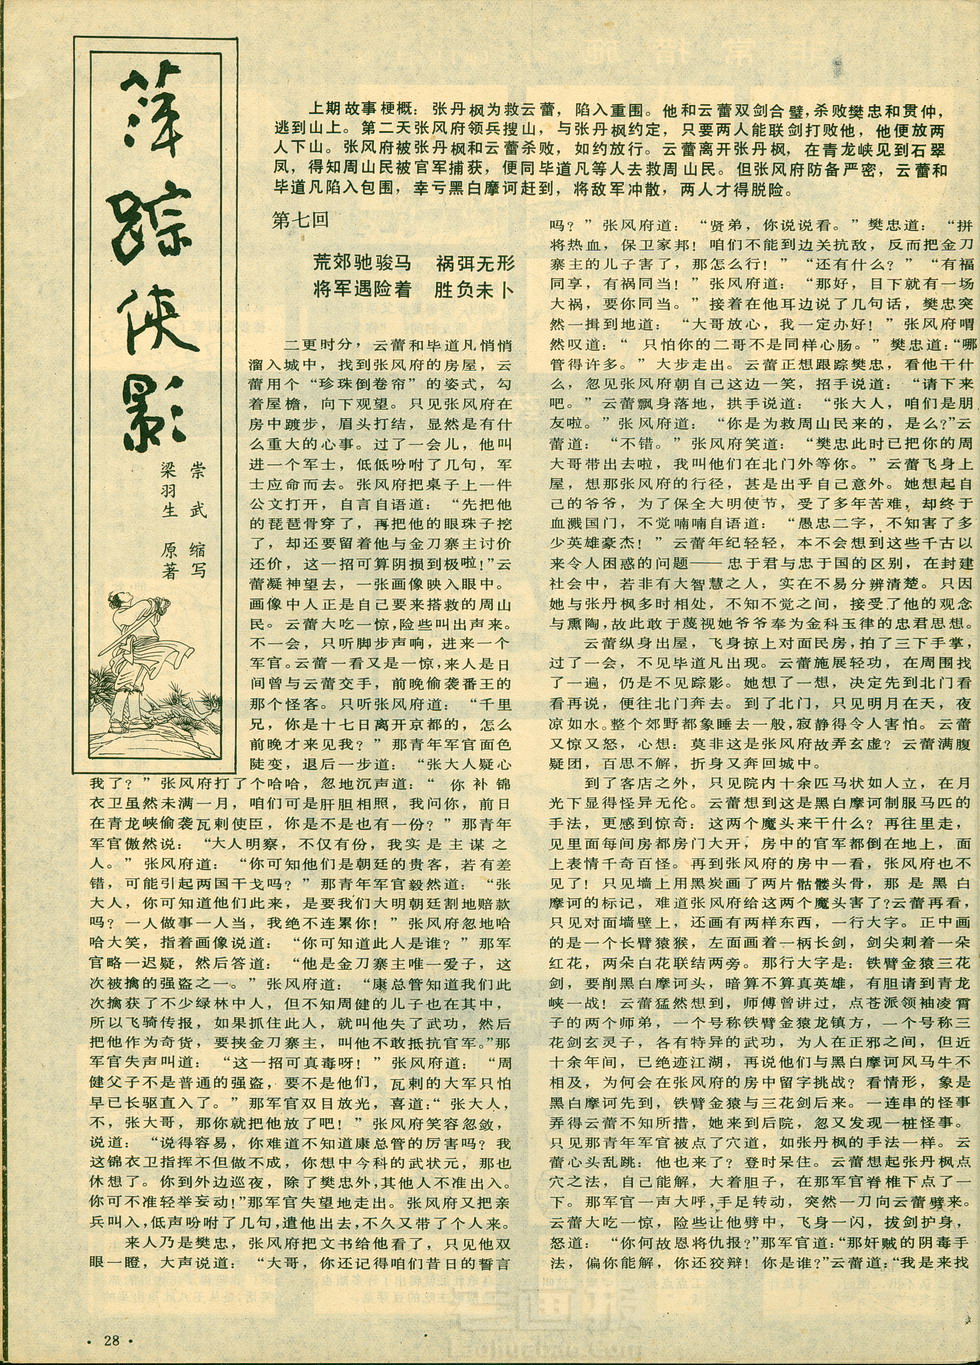 萍踪侠影
梁羽生 原著
崇武 缩写
上期故事梗概：张丹枫为救云蕾，陷入重围。他和云蕾双剑合璧，杀败樊忠和贯仲，
逃到山上。第二天张风府领兵搜山，与张丹枫约定，只要两人能联剑打败他，他便放两
人下山。张风府被张丹枫和云蕾杀败，如约放行。云蕾离开张丹枫，在青龙峡见到石翠
凤，得知周山民被官军捕获，便同毕道凡等人去救周山民。但张风府防备严密，云蕾和
毕道凡陷入包围，幸亏黑白摩诃赶到，将敌军冲散，两人才得脱险。
第七回
荒郊驰骏马 祸弭无形
将军遇险着 胜负未卜
二更时分，云蕾和毕道凡悄悄
溜入城中，找到张风府的房屋，云
蕾用个“珍珠倒卷帘”的姿式，勾
着屋檐，向下观望。只见张风府在
房中踱步，眉头打结，显然是有什
么重大的心事。过了一会儿，他叫
进一个军士，低低吩咐了几句，军
士应命而去。张风府把桌子上一件
公文打开，自言自语道：“先把他
的琵琶骨穿了，再把他的眼珠子挖
了，却还要留着他与金刀寨主讨价
还价，这一招可算阴损到极啦！”云
蕾凝神望去，一张画像映入眼中。
画像中人正是自己要来搭救的周山
民。云蕾大吃一惊，险些叫出声来。
不一会，只听脚步声响，进来一个
军官。云蕾一看又是一惊，来人是日
间曾与云蕾交手，前晚偷袭番王的
那个怪客。只听张风府道：“千里
兄，你是十七日离开京都的，怎么
前晚才来见我？”那青年军官面色
陡变，退后一步道：“张大人疑心
我了？”张风府打了个哈哈，忽地沉声道：“你补锦
衣卫虽然未满一月，咱们可是肝胆相照，我问你，前日
在青龙峡偷袭瓦剌使臣，你是不是也有一份？”那青年
军官傲然说：“大人明察，不仅有份，我实是主谋之
人。”张风府道：“你可知他们是朝廷的贵客，若有差
错，可能引起两国干戈吗？”那青年军官毅然道：“张
大人，你可知道他们此来，是要我们大明朝廷割地赔款
吗？一人做事一人当，我绝不连累你！”张风府忽地哈
哈大笑，指着画像说道：“你可知道此人是谁？”那军
官略一迟疑，然后答道：“他是金刀寨主唯一爱子，这
次被擒的强盗之一。”张风府道：“康总管知道我们此
次擒获了不少绿林中人，但不知周健的儿子也在其中，
所以飞骑传报，如果抓住此人，就叫他失了武功，然后
把他作为奇货，要挟金刀寨主，叫他不敢抵抗官军。”那
军官失声叫道：“这一招可真毒呀！”张风府道：“周
健父子不是普通的强盗，要不是他们，瓦剌的大军只怕
早已长驱直入了。”那军官双目放光，喜道：“张大人，
不，张大哥，那你就把他放了吧！”张风府笑容忽敛，
说道：“说得容易，你难道不知道康总管的厉害吗？我
这锦衣卫指挥不但做不成，你想中今科的武状元，那也
休想了。你到外边巡夜，除了樊忠外，其他人不准出入。
你可不准轻举妄动！”那军官失望地走出。张风府又把亲
兵叫入，低声吩咐了几句，遣他出去，不久又带了个人来。
来人乃是樊忠，张风府把文书给他看了，只见他双
眼一瞪，大声说道：“大哥，你还记得咱们昔日的誓言
吗？”张风府道：“贤弟，你说说看。”樊忠道：“拼
将热血，保卫家邦！咱们不能到边关抗敌，反而把金刀
寨主的儿子害了，那怎么行！”“还有什么？”“有福
同享，有祸同当！”张风府道：“那好，目下就有一场
大祸，要你同当。”接着在他耳边说了几句话，樊忠突
然一揖到地道：“大哥放心，我一定办好！”张风府喟
然叹道：“只怕你的二哥不是同样心肠。”樊忠道：“哪
管得许多。”大步走出。云蕾正想跟踪樊忠，看他干什
么，忽见张风府朝自己这边一笑，招手说道：“请下来
吧。”云蕾飘身落地，拱手说道：“张大人，咱们是朋
友啦。”张风府道：“你是为救周山民来的，是么？”云
蕾道：“不错。”张风府笑道：“樊忠此时已把你的周
大哥带出去啦，我叫他们在北门外等你。”云蕾飞身上
屋，想那张风府的行径，甚是出乎自己意外。她想起自
己的爷爷，为了保全大明使节，受了多年苦难，却终于
血溅国门，不觉喃喃自语道：“愚忠二字，不知害了多
少英雄豪杰！”云蕾年纪轻轻，本不会想到这些千古以
来令人困惑的问题——忠于君与忠于国的区别，在封建
社会中，若非有大智慧之人，实在不易分辨清楚。只因
她与张丹枫多时相处，不知不觉之间，接受了他的观念
与熏陶，故此敢于蔑视她爷爷奉为金科玉律的忠君思想。
云蕾纵身出屋，飞身掠上对面民房，拍了三下手掌，
过了一会，不见毕道凡出现。云蕾施展轻功，在周围找
了一遍，仍是不见踪影。她想了一想，决定先到北门看
看再说，便往北门奔去。到了北门，只见明月在天，夜
凉如水。整个郊野都象睡去一般，寂静得令人害怕。云蕾
又惊又怒，心想：莫非这是张风府故弄玄虚？云蕾满腹
疑团，百思不解，折身又奔回城中。
到了客店之外，只见院内十余匹马状如人立，在月
光下显得怪异无伦。云蕾想到这是黑白摩诃制服马匹的
手法，更感到惊奇：这两个魔头来干什么？再往里走，
见里面每间房都房门大开，房中的官军都倒在地上，面
上表情千奇百怪。再到张风府的房中一看，张风府也不
见了！只见墙上用黑炭画了两片骷髅头骨，那是黑白
摩诃的标记，难道张风府给这两个魔头害了？云蕾再看，
只见对面墙壁上，还画有两样东西，一行大字。正中画
的是一个长臂猿猴，左面画着一柄长剑，剑尖刺着一朵
红花，两朵白花联结两旁。那行大字是：铁臂金猿三花
剑，要削黑白摩诃头，暗算不算真英雄，有胆请到青龙
峡一战！云蕾猛然想到，师傅曾讲过，点苍派领袖凌霄
子的两个师弟，一个号称铁臂金猿龙镇方，一个号称三
花剑玄灵子，各有特异的武功，为人在正邪之间，但近
十余年间，已绝迹江湖，再说他们与黑白摩诃风马牛不
相及，为何会在张风府的房中留字挑战？看情形，象是
黑白摩诃先到，铁臂金猿与三花剑后来。一连串的怪事
弄得云蕾不知所措，她来到后院，忽又发现一桩怪事。
只见那青年军官被点了穴道，如张丹枫的手法一样。云
蕾心头乱跳：他也来了？登时呆住。云蕾想起张丹枫点
穴之法，自己能解，大着胆子，在那军官脊椎下点了一
下。那军官一声大呼，手足转动，突然一刀向云蕾劈来。
云蕾大吃一惊，险些让他劈中，飞身一闪，拔剑护身，
怒道：“你何故恩将仇报？”那军官道：“那奸贼的阴毒手
法，偏你能解，你还狡辩！你是谁？”云蕾道：“我是来找
· 28 ·
老画报
laohuabao.com